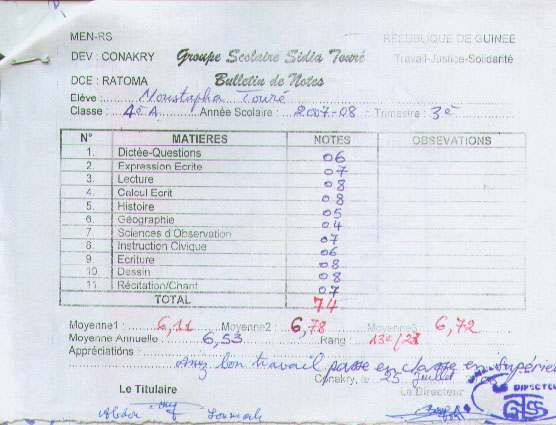 MEN-RS REPUBLIQUE DE GUINEE
DEV : CONAKRY Groupe Scolaire Sidia Touré Travail-Justice-Solidarité
DCE : RATOMA Bulletin de Notes
Elève : Moustapha Touré
Classe : 4è A Année Scolaire : 2007-08 Trimestre : 3è
N° MATIERES NOTES OBSEVATIONS
1. Dictée-Questions 06
2. Expression Ecrite 07
3. Lecture 08
4. Calcul Ecrit 08
5. Histoire 05
6. Géographie 04
7 Sciences d'Observation 07
8. Instruction Civique 06
9. Ecriture 08
10. Dessin 08
11. Récitation/Chant 07
TOTAL 74
Moyenne1 : 6,11 Moyenne2 : 6,78 Moyenne3 6,72
Moyenne Annuelle : 6,53 Rang : 13è/28
Appréciations :
Assez bon travail passe en classe en Supérieu
Conakry, le 25 Juillet
Le Titulaire Le Directeur
DIRECTEU